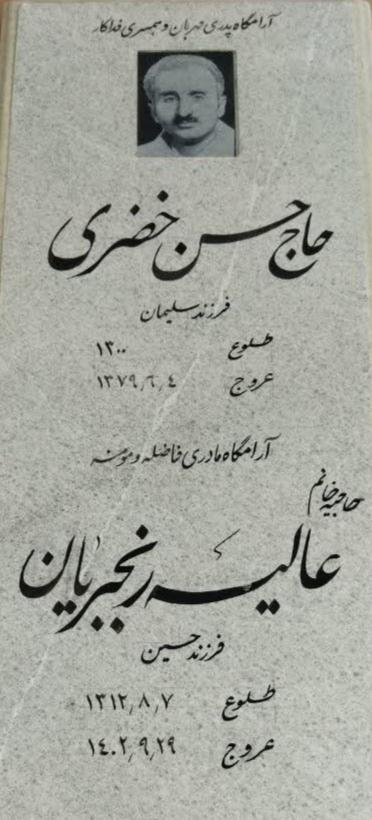 آرامگاه پدری مهربان و همسری فداکار
حاج حسن خضری
فرزند سلیمان
طلوع ۱۳۰۰
عروج ۱۳۷۹٫۶٫۴
آرامگاه مادری فاضله و مومنه
حاجیه خانم
عالیه رنجبریان
فرزند حسین
طلوع ۱۳۱۲٫۸٫۷
عروج ۱۴۰۲٫۹٫۲۹